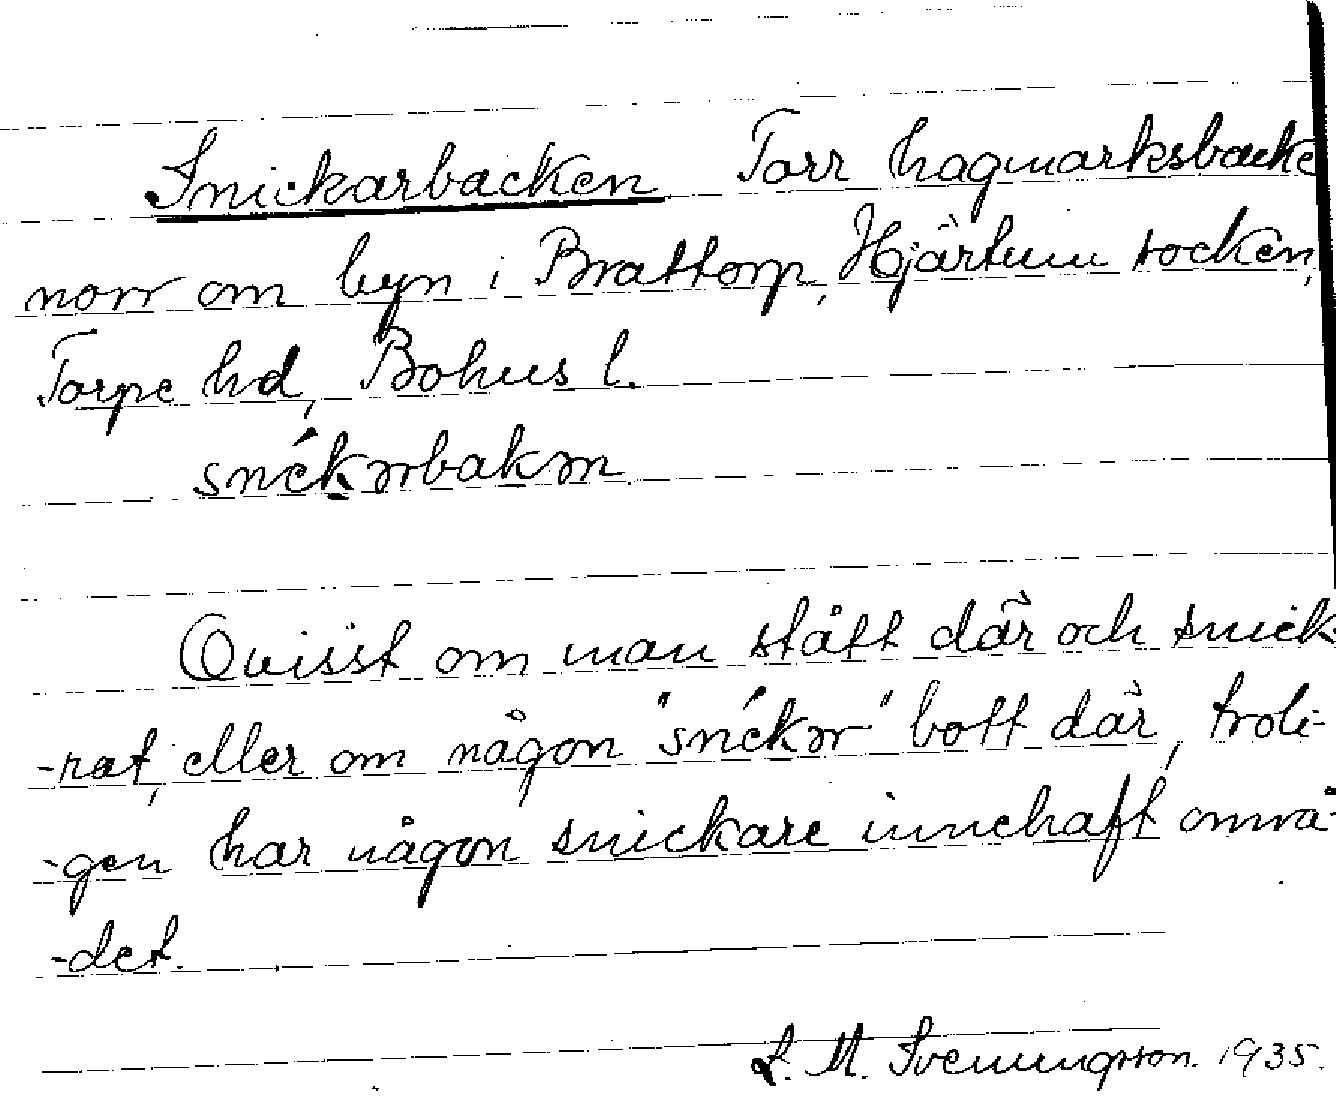 Snickarbacken Torr hagmarksbacke
norr om byn i Brattorp, Hjärtum socken,
Torpe hd, Bohus l.
snékɘrbakɘn
Ovisst om man stått där och snick-
-rat, eller om någon "snékɘr" bott där, troli-
-gen har någon snickare innehaft områ-
-det.
L. M. Svenungsson. 1935.